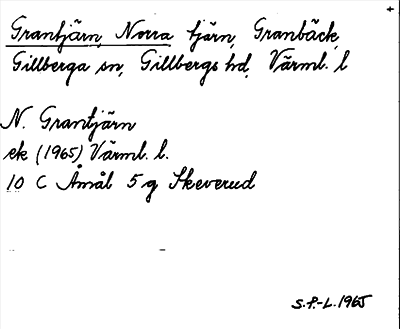 Grantjärn, Norra tjärn, Granbäck,
Gillberga sn, Gillbergs hd, Värml. l
N. Grantjärn
ek (1965) Värml. l.
10 C Åmål 5 g Skeverud
S.P.-L. 1965